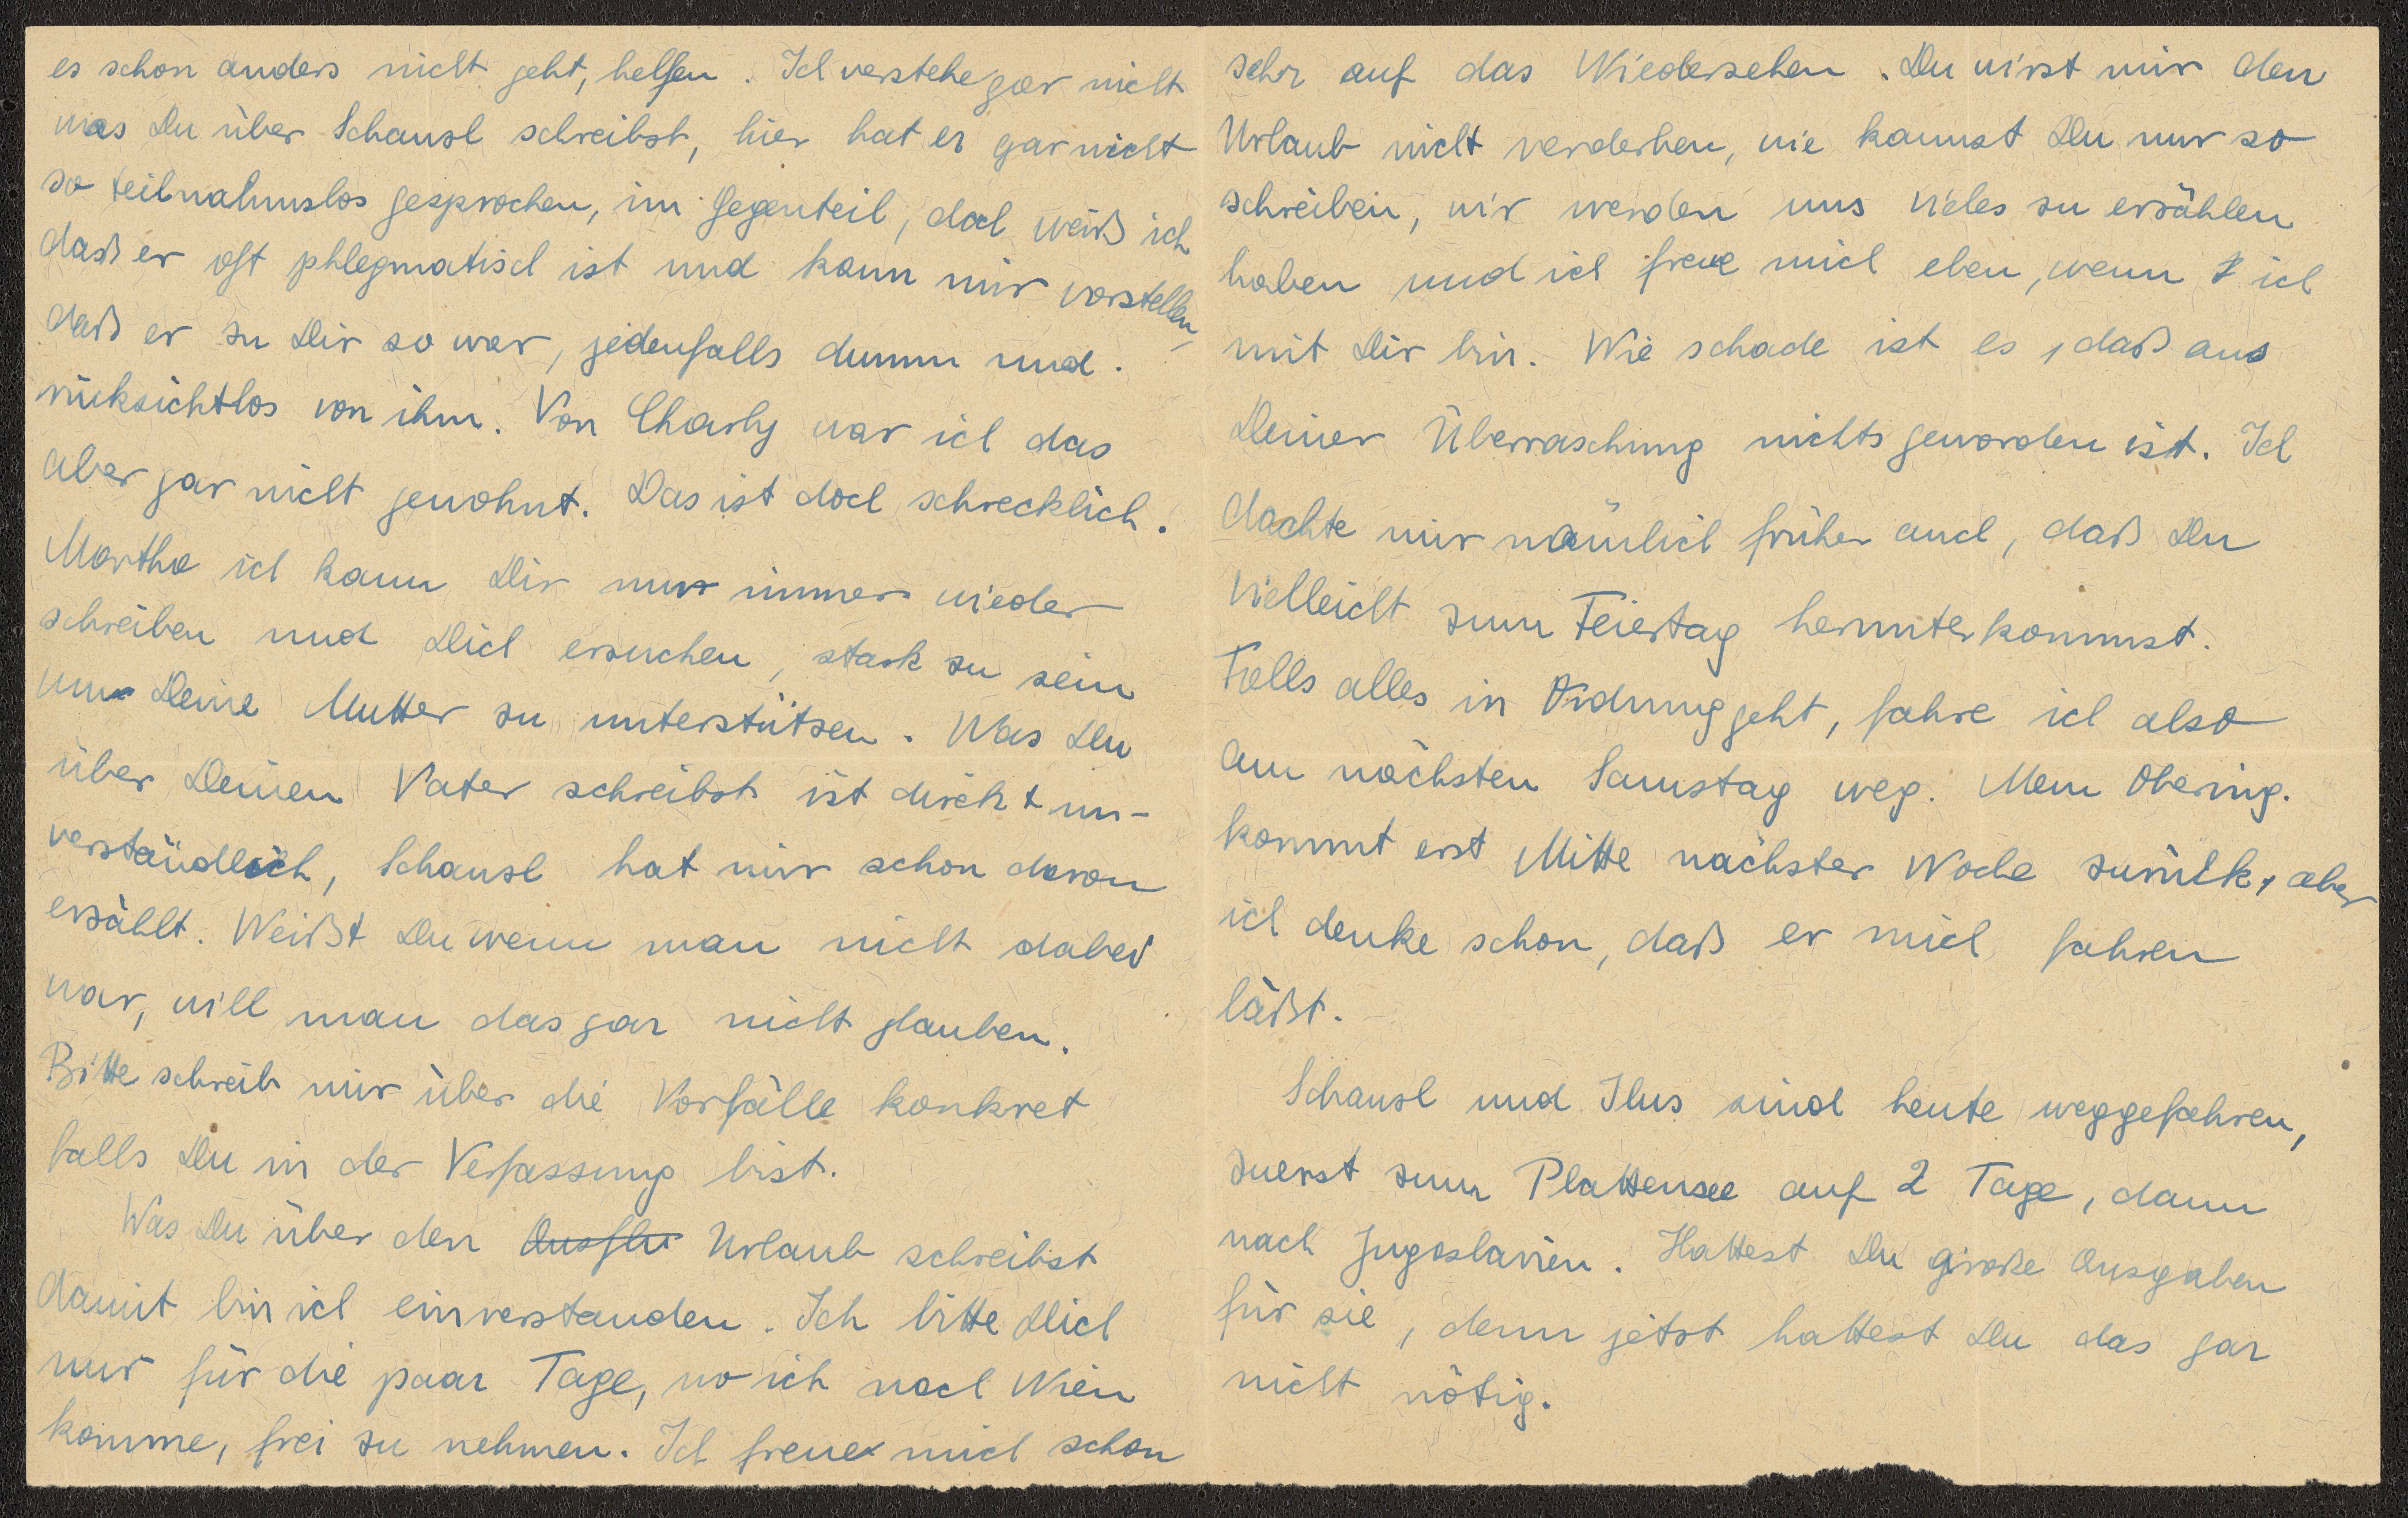 es schon anders nicht geht, helfen. Ich verstehe gar nicht
was Du über Schansl schreibst, hier hat er gar nicht
so teilnahmslos gesprochen, im Gegenteil, doch weiß ich
daß er oft phlegmatisch ist und kann mir vorstellen,
daß er zu Dir so war, jedenfalls dumm und
rücksichtlos von ihm. Von Charly war ich das
aber gar nicht gewohnt. Das ist doch schrecklich.
Martha ich kann Dir nur immer wieder
schreiben und Dich ersuchen, stark zu sein
um Deine Mutter zu unterstützen. Was Du
über Deinen Vater schreibst ist direkt un-
verständlich, Schansl hat mir schon davon
erzählt. Weißt Du wenn man nicht dabei
war, will man das gar nicht glauben.
Bitte schreib mir über die Vorfälle konkret
falls Du in der Verfassung bist.
Was Du über den Ausflu Urlaub schreibst
damit bin ich einverstanden. Ich bitte Dich
nur für die paar Tage, wo ich nach Wien
komme, frei zu nehmen. Ich freue mich schon
sehr auf das Wiedersehen. Du wirst mir den
Urlaub nicht verderben, wie kannst Du nur so
schreiben, wir werden uns vieles zu erzählen
haben und ich freue mich eben, wenn ich
mit Dir bin. Wie schade ist es, daß aus
Deiner Überraschung nichts geworden ist. Ich
dachte mir nämlich früher auch, daß Du
vielleicht zum Feiertag herunterkommst.
Falls alles in Ordnung geht, fahre ich also
am nächsten Samstag weg. Mein Obering.
kommt erst Mitte nächster Woche zurück, aber
ich denke schon, daß er mich fahren
läßt.
Schansl und Ilus sind heute weggefahren,
zuerst zum Plattensee auf 2 Tage, dann
nach Jugoslavien. Hattest Du große Ausgaben
für sie, denn jetzt hattest Du das gar
nicht nötig.